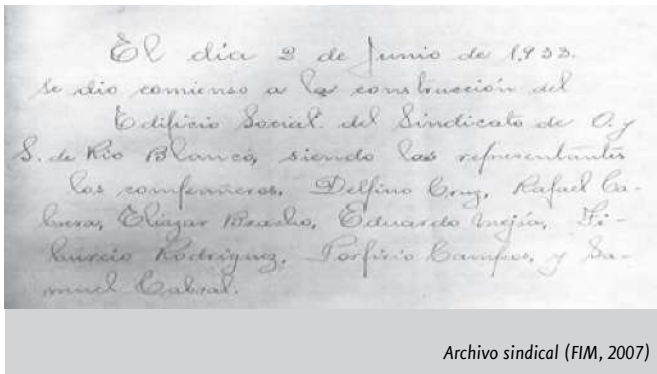 El dia 2 de Junio de 1,933.
se dio comienso a la construcción del
Edificio Social. del Sindicato de O. y
S. de Rio Blanco, siendo los representantes
los compañeros, Delfino Cruz, Rafael Ca-
brera, Eliazar Eduardo Mejía, Ti-
burcio Rodriguez, Porfirio Campos, y Sa-
muel Cabral.
Archivo sindical (FIM, 2007)